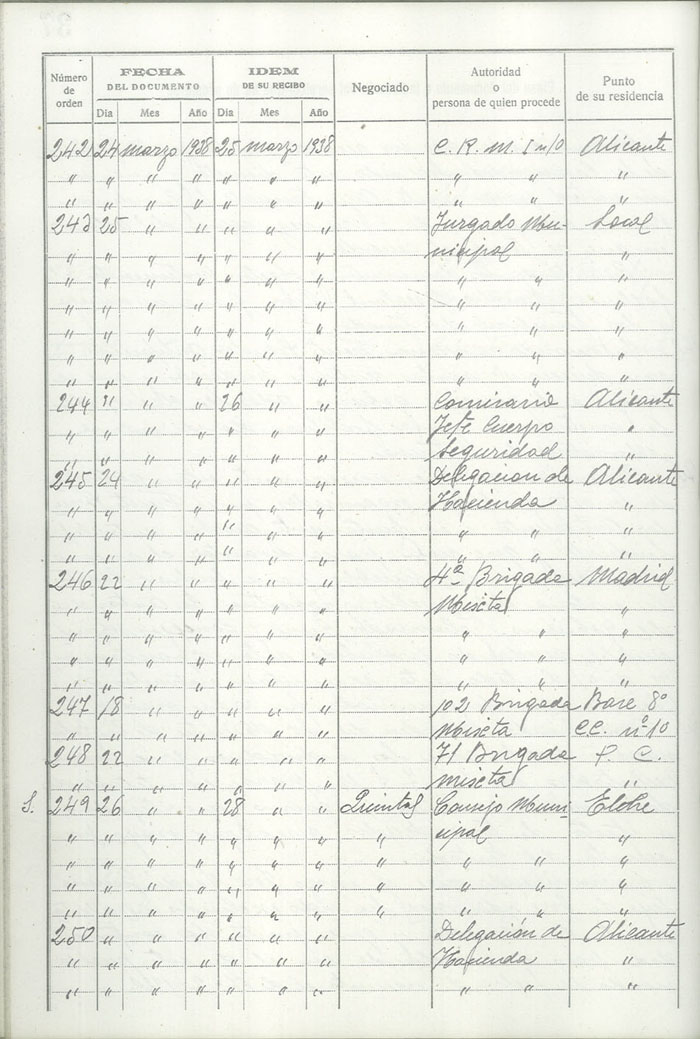 Número de orden FECHA DEL DOCUMENTO IDEM DE SU RECIBO Negociado Autoridad o persona de quien procede Punto de su residencia
Dia Mes Año Dia Mes Año
242 24 marzo 1938 25 marzo 1938 C. R. M. I nº 10 Alicante
" " " " " " " " " "
" " " " " " " " " "
243 25 " " " " " Juzgado Mu- Local
" " " " " " " nicipal "
" " " " " " " " " "
" " " " " " " " " "
" " " " " " " " " "
" " " " " " " " " "
" " " " " " " " " "
244 " " " 26 " " Comisario Alicante
" " " " " " " Jefe Cuerpo "
" " " " " " " Seguridad "
245 24 " " " " " Delegación de Alicante
" " " " " " " Hacienda "
" " " " " " " " " "
" " " " " " " " " "
246 22 " " " " " 4ª Brigada Madrid
" " " " " " " Mixta "
" " " " " " " " " "
" " " " " " " " " "
" " " " " " " " " "
247 18 " " " " " 102 Brigada Base 8º
" " " " " " " Mixta C.C. nº 10
248 22 " " " " " 71 Brigada P. C.
" " " " " " " mixta "
S. 249 26 " " 28 " " Quintas Consejo Muni- Elche
" " " " " " " " cipal "
" " " " " " " " " " "
" " " " " " " " " " "
" " " " " " " " " " "
250 " " " " " " Delegación de Alicante
" " " " " " " Hacienda "
" " " " " " " " " "